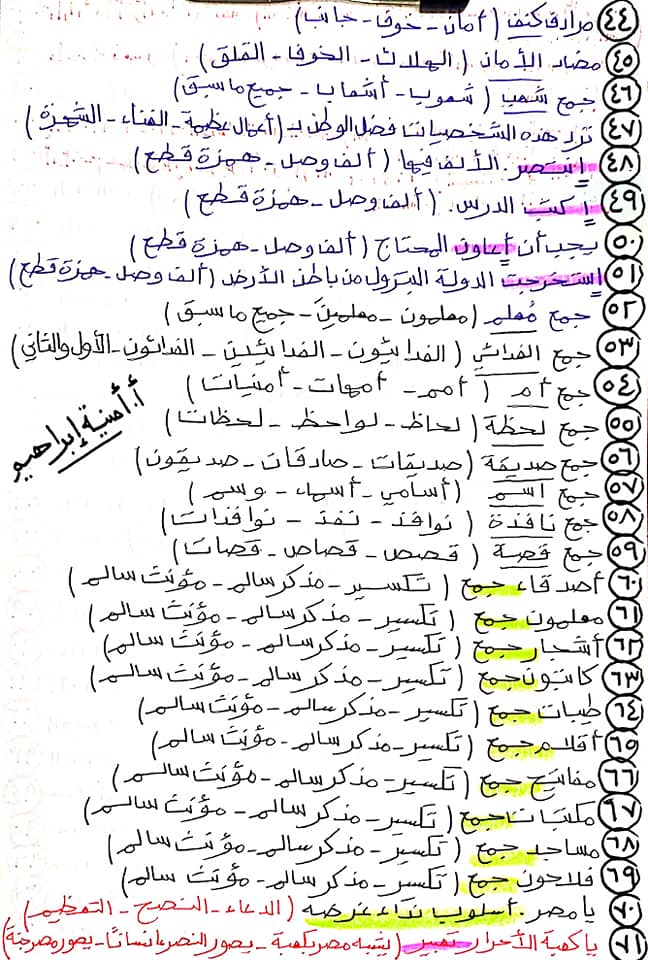 ٤٤ مرادف كنف (أمان - خوف - جانب)
٤٥ مضاد الأمان (الهلاك - الخوف - القلق)
٤٦ جمع شعب (شعوب - أشعاب - جميع ما سبق)
٤٧ ترد هذه الشخصيات فضل الوطن بـ (أعمال عظيمة - الغناء - الشهرة)
٤٨ انتصر. الألف فيها (ألف وصل - همزة قطع)
٤٩ اكتب الدرس. (ألف وصل - همزة قطع)
٥٠ يجب أن أعاون المحتاج (ألف وصل - همزة قطع)
٥١ استخرجت الدولة البترول من باطن الأرض (ألف وصل - همزة قطع)
٥٢ جمع مُعلم (معلمون - معلمين - جميع ما سبق)
٥٣ جمع الفدائي (الفدائيون - الفدائيين - الفدائون - الأول والثاني)
٥٤ جمع أم (أمم - أمهات - أمنيات)
٥٥ جمع لحظة (لحاظ - لواحظ - لحظات)
٥٦ جمع صديقة (صديقات - صادقات - صديقون)
٥٧ جمع اسم (أسامي - أسماء - وسم)
٥٨ جمع نافذة (نوافذ - نفذ - نوافذات)
٥٩ جمع قصة (قصص - قصاص - قصات)
٦٠ أصدقاء جمع (تكسير - مذكر سالم - مؤنث سالم)
٦١ معلمون جمع (تكسير - مذكر سالم - مؤنث سالم)
٦٢ أشجار جمع (تكسير - مذكر سالم - مؤنث سالم)
٦٣ كاتبون جمع (تكسير - مذكر سالم - مؤنث سالم)
٦٤ طيبات جمع (تكسير - مذكر سالم - مؤنث سالم)
٦٥ أقلام جمع (تكسير - مذكر سالم - مؤنث سالم)
٦٦ مفاتيح جمع (تكسير - مذكر سالم - مؤنث سالم)
٦٧ مكتبات جمع (تكسير - مذكر سالم - مؤنث سالم)
٦٨ مساجد جمع (تكسير - مذكر سالم - مؤنث سالم)
٦٩ فلاحون جمع (تكسير - مذكر سالم - مؤنث سالم)
٧٠ يا مصر. أسلوب نداء غرضه (الدعاء - النصح - التعظيم)
٧١ يا كعبة الأحرار تعبير (يشبه مصر بكعبة - يصور النصر بإنسانًا - يصور مصر جنة)
أ. أمنية إبراهيم